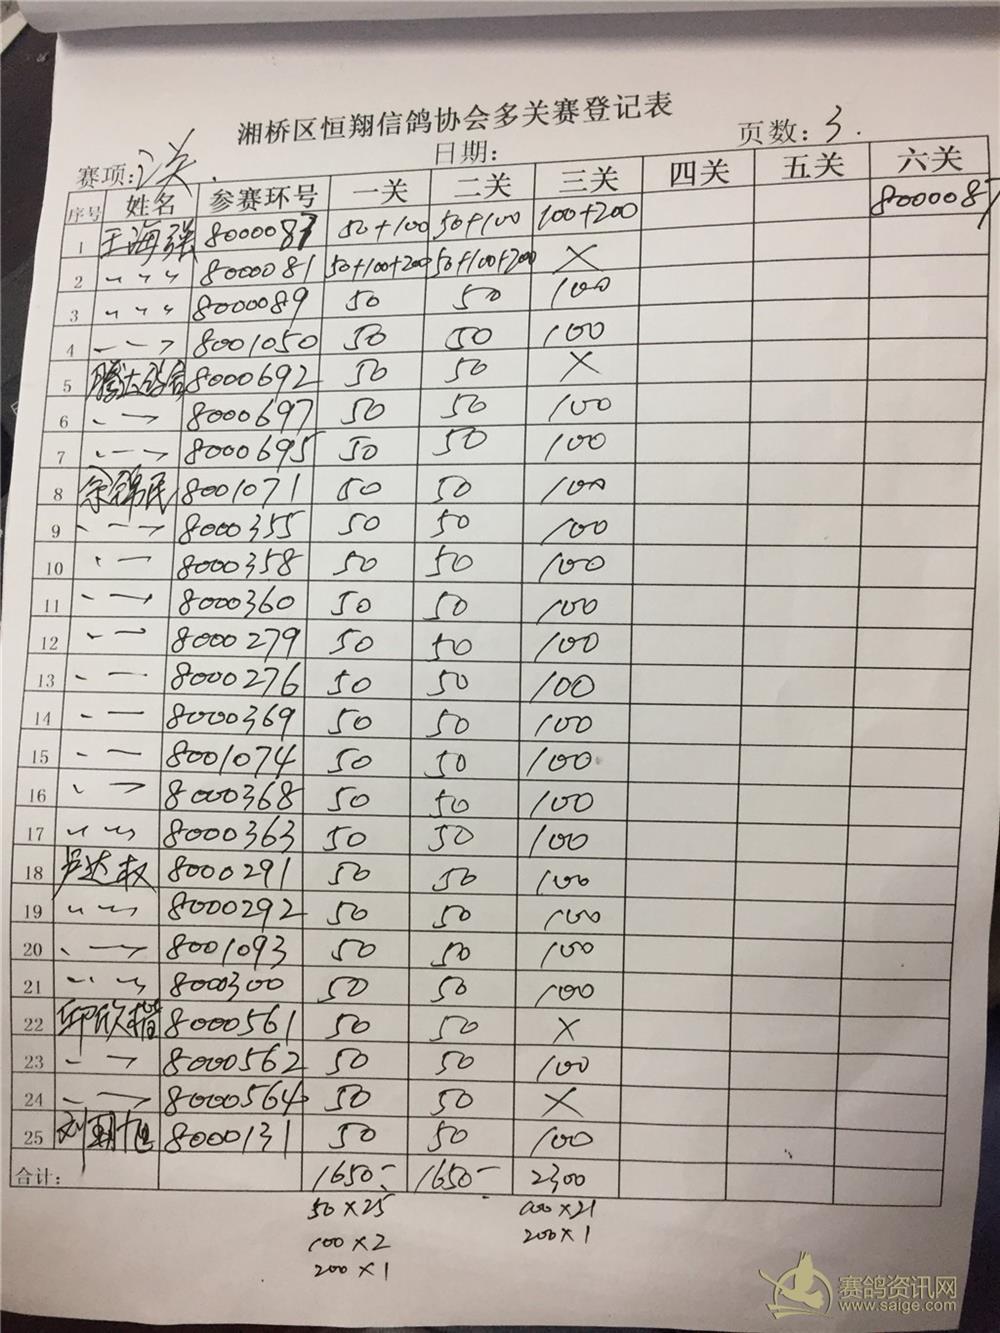 湘桥区恒翔信鸽协会多关赛登记表
赛项: 三关. 日期: 页数: 3.
序号 姓名 参赛环号 一关 二关 三关 四关 五关 六关
1 王海强 8000087 50+100 50+100 100+200 8000087
2 〃 〃 〃 8000081 50+100+200 50+100+200 ×
3 〃 〃 〃 8000089 50 50 100
4 〃 〃 8001050 50 50 100
5 腾达鸽舍 8000692 50 50 ×
6 〃 〃 8000697 50 50 100
7 〃 〃 8000695 50 50 100
8 余锦民 8001071 50 50 100
9 〃 〃 8000355 50 50 100
10 〃 〃 8000358 50 50 100
11 〃 〃 8000360 50 50 100
12 〃 〃 8000279 50 50 100
13 〃 〃 8000276 50 50 100
14 〃 〃 8000369 50 50 100
15 〃 〃 8001074 50 50 100
16 〃 〃 8000368 50 50 100
17 〃 〃 8000363 50 50 100
18 卢达权 8000291 50 50 100
19 〃 〃 8000292 50 50 100
20 〃 〃 8001093 50 50 100
21 〃 〃 8000300 50 50 100
22 邱欣楷 8000561 50 50 ×
23 〃 〃 8000562 50 50 100
24 〃 〃 8000564 50 50 ×
25 刘朝旭 8000131 50 50 100
合计: 1650- 1650- 2300
50×25 100×21
100×2 200×1
200×1
赛鸽资讯网
www.saige.com